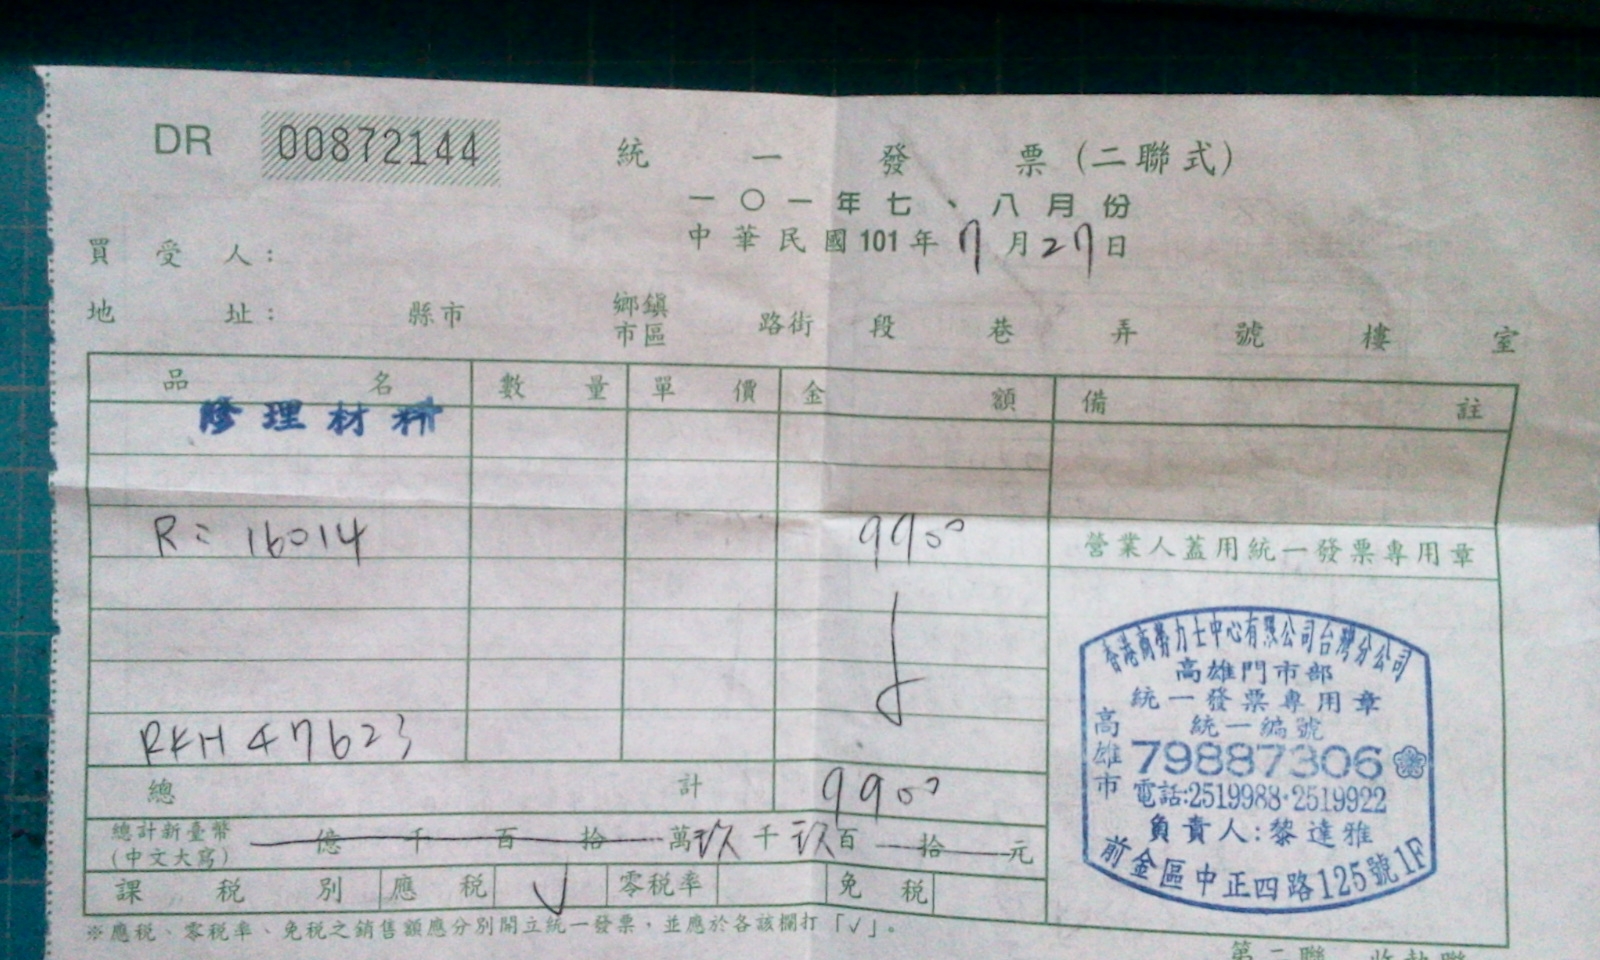 DR 00872144
統一發票(二聯式)
一〇一年七、八月份
中華民國101年7月27日
買受人:
地址: 縣市 鄉鎮市區 路街 段 巷 弄 號 樓 室
品名 數量 單價 金額 備註
修理材料
R: 16014 9900
營業人蓋用統一發票專用章
RKH 47623
總計 9900
總計新臺幣(中文大寫) 億 千 百 拾 萬 玖 千 玖 百 拾 元
課稅別 應稅 √ 零稅率 免稅
※應稅、零稅率、免稅之銷售額應分別開立統一發票,並應於各該欄打「√」。
香港商勞力士中心有限公司台灣分公司
高雄門市部
統一發票專用章
統一編號
高雄市
79887306
電話:2519988·2519922
負責人:黎達雅
前金區中正四路125號1F
第二聯 收執聯